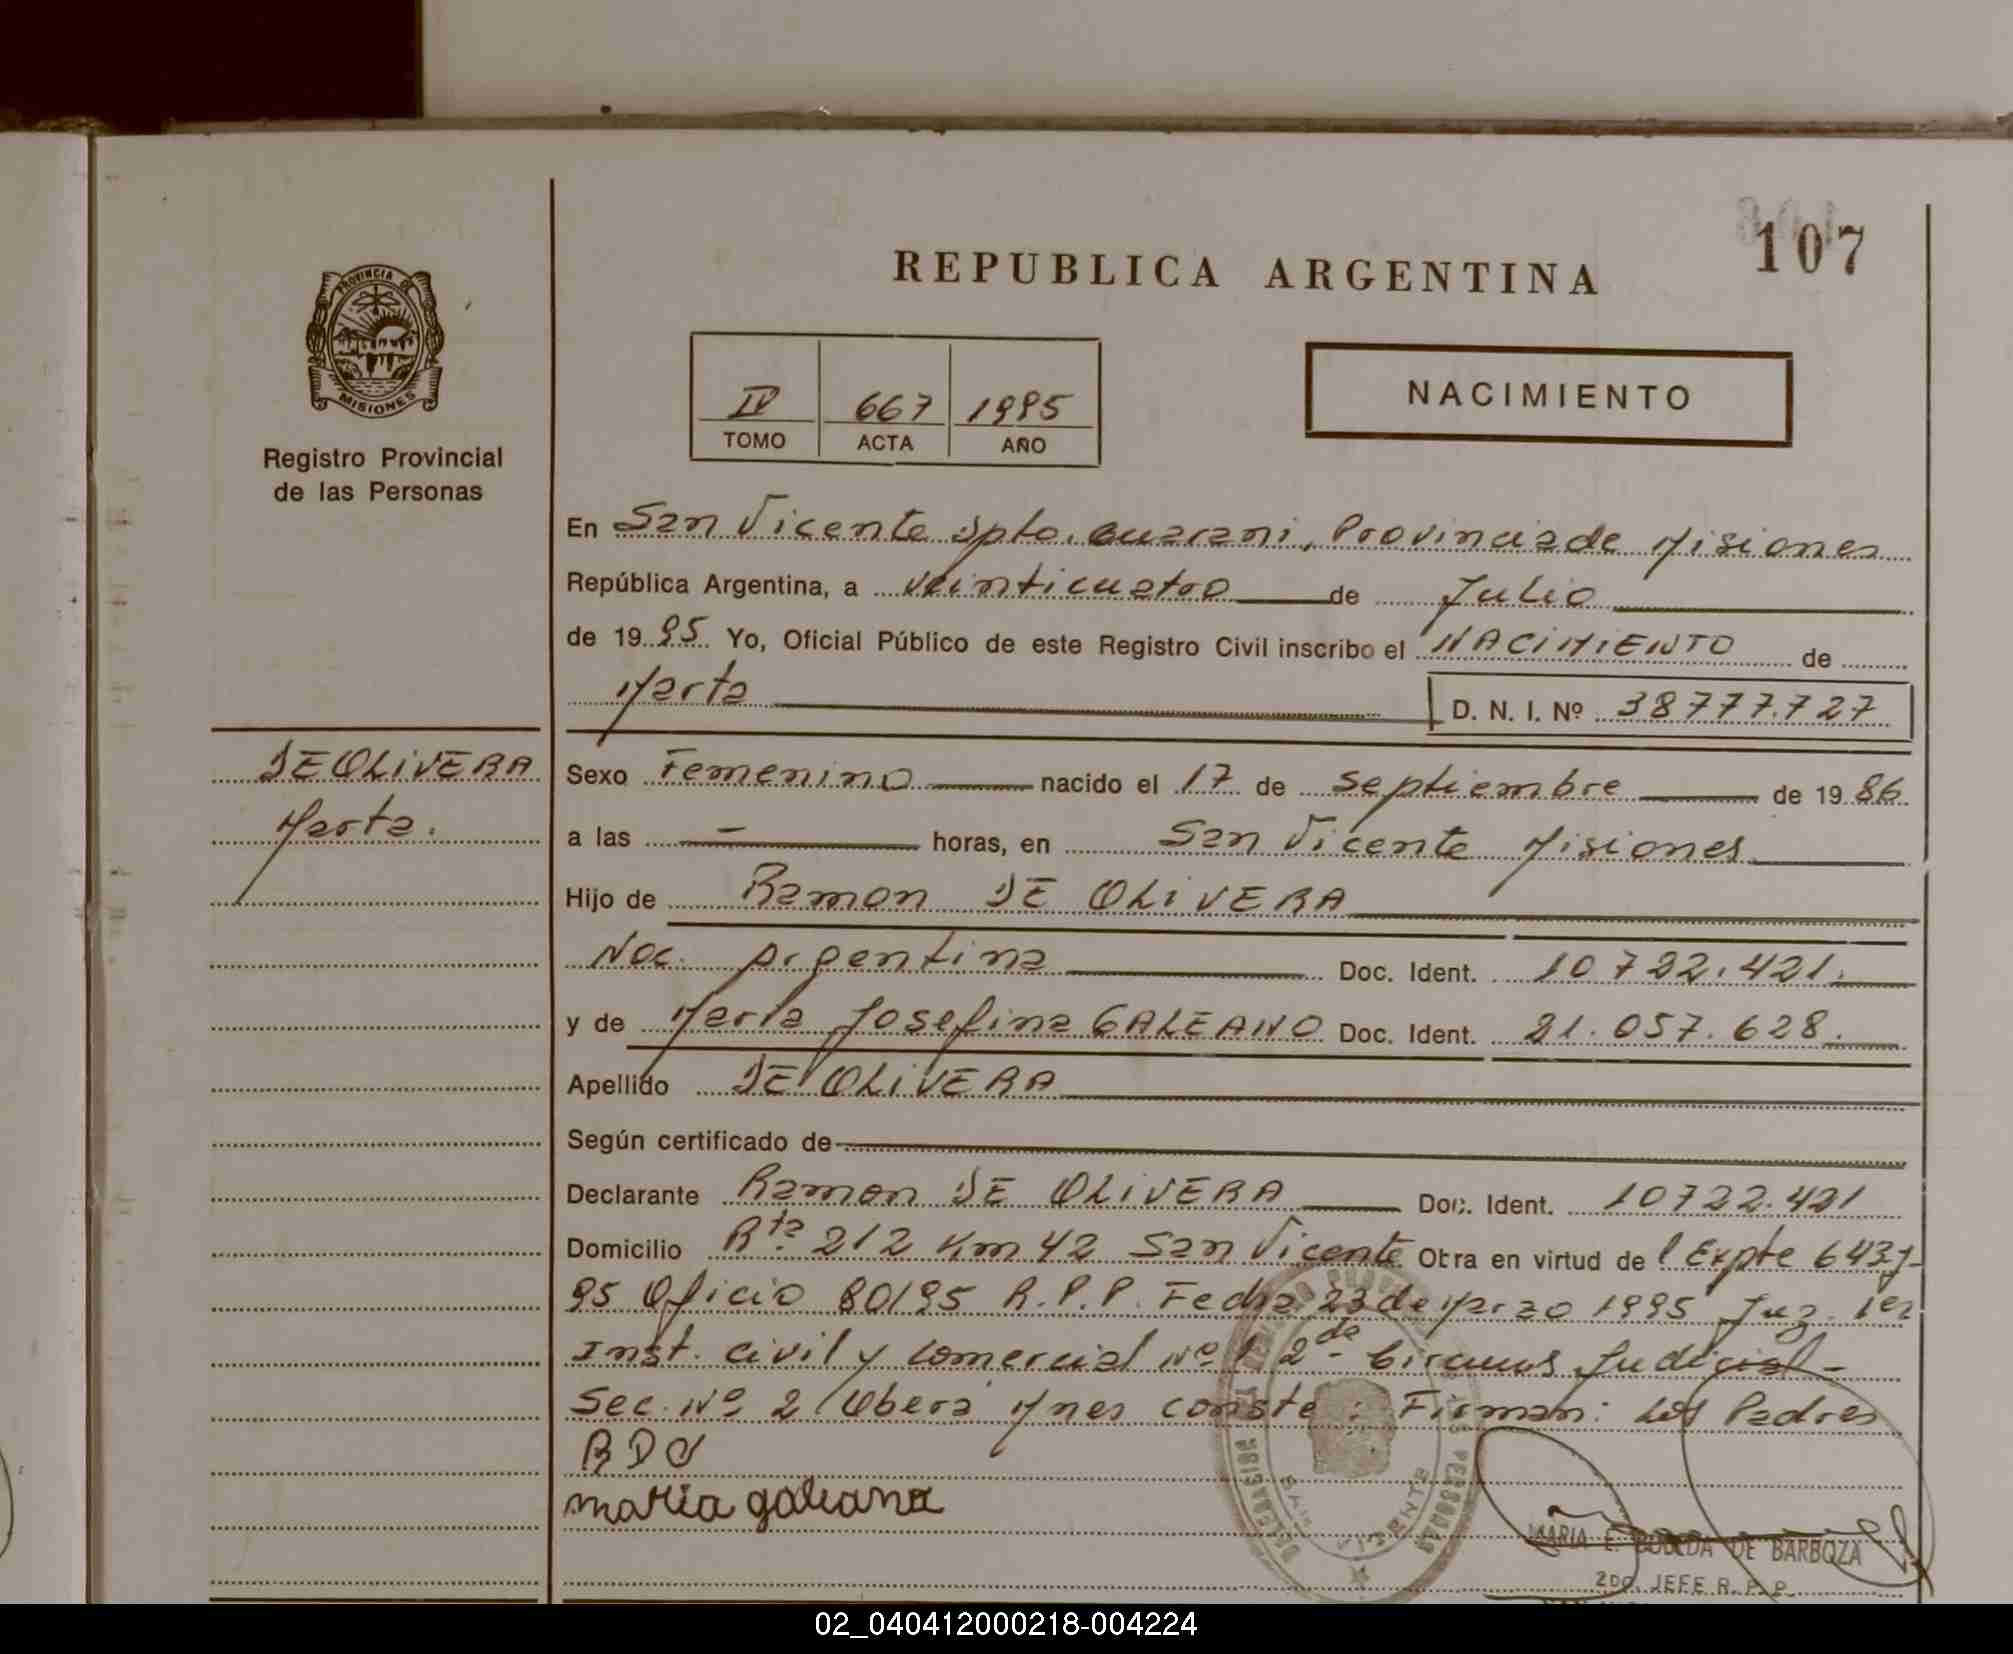 107
REPUBLICA ARGENTINA
PROVINCIA DE
MISIONES
Registro Provincial
de las Personas
IV 667 1995
TOMO ACTA AÑO
NACIMIENTO
En San Vicente Dpto. Guarani, Provincia de Misiones
República Argentina, a veinticuatro de Julio
de 1995 Yo, Oficial Público de este Registro Civil inscribo el NACIMIENTO de
Marta D. N. I. Nº 38777.727
DE OLIVERA
Marta.
Sexo Femenino nacido el 17 de Septiembre de 1986
a las — horas, en San Vicente Misiones
Hijo de Ramon DE OLIVERA
Nac. Argentina Doc. Ident. 10722.421.
y de Maria Josefina GALEANO Doc. Ident. 21.057.628.
Apellido DE OLIVERA
Según certificado de
Declarante Ramon DE OLIVERA Doc. Ident. 10722.421
Domicilio Rta. 212 Km 42 San Vicente Otra en virtud de l Expte 643/-
95 Oficio 80/95 R.P.P. Fecha 23 de Marzo 1995 Juz. 1er
Inst. Civil y Comercial Nº 1 2da Circuns Judicial-
Sec. Nº 2 Obera Mnes conste: Firman: Los Padres
RDO
maria galeano
MARIA E. DE BARBOZA
2DO. JEFE R. P. P.
02_040412000218-004224